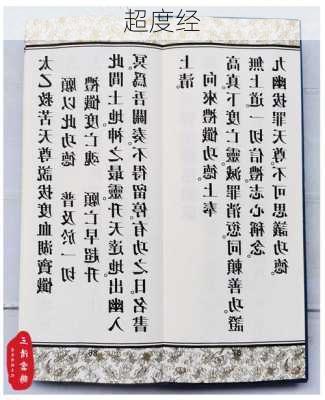 超度经
太乙救苦天尊說拔度血湖寶懺
願以此功德　普及於一切
禮懺度亡魂　願亡早超升
此間土地。神之最靈。升天達地。出幽入
冥。為吾關奏。不得留停。有功之日。名書
上清。
向來禮懺功德。上奉
高真。下度亡靈。滅罪消愆。同賴善功。證
無上道。一切信禮。志心稱念。
九幽拔罪天尊。不可思議功德。